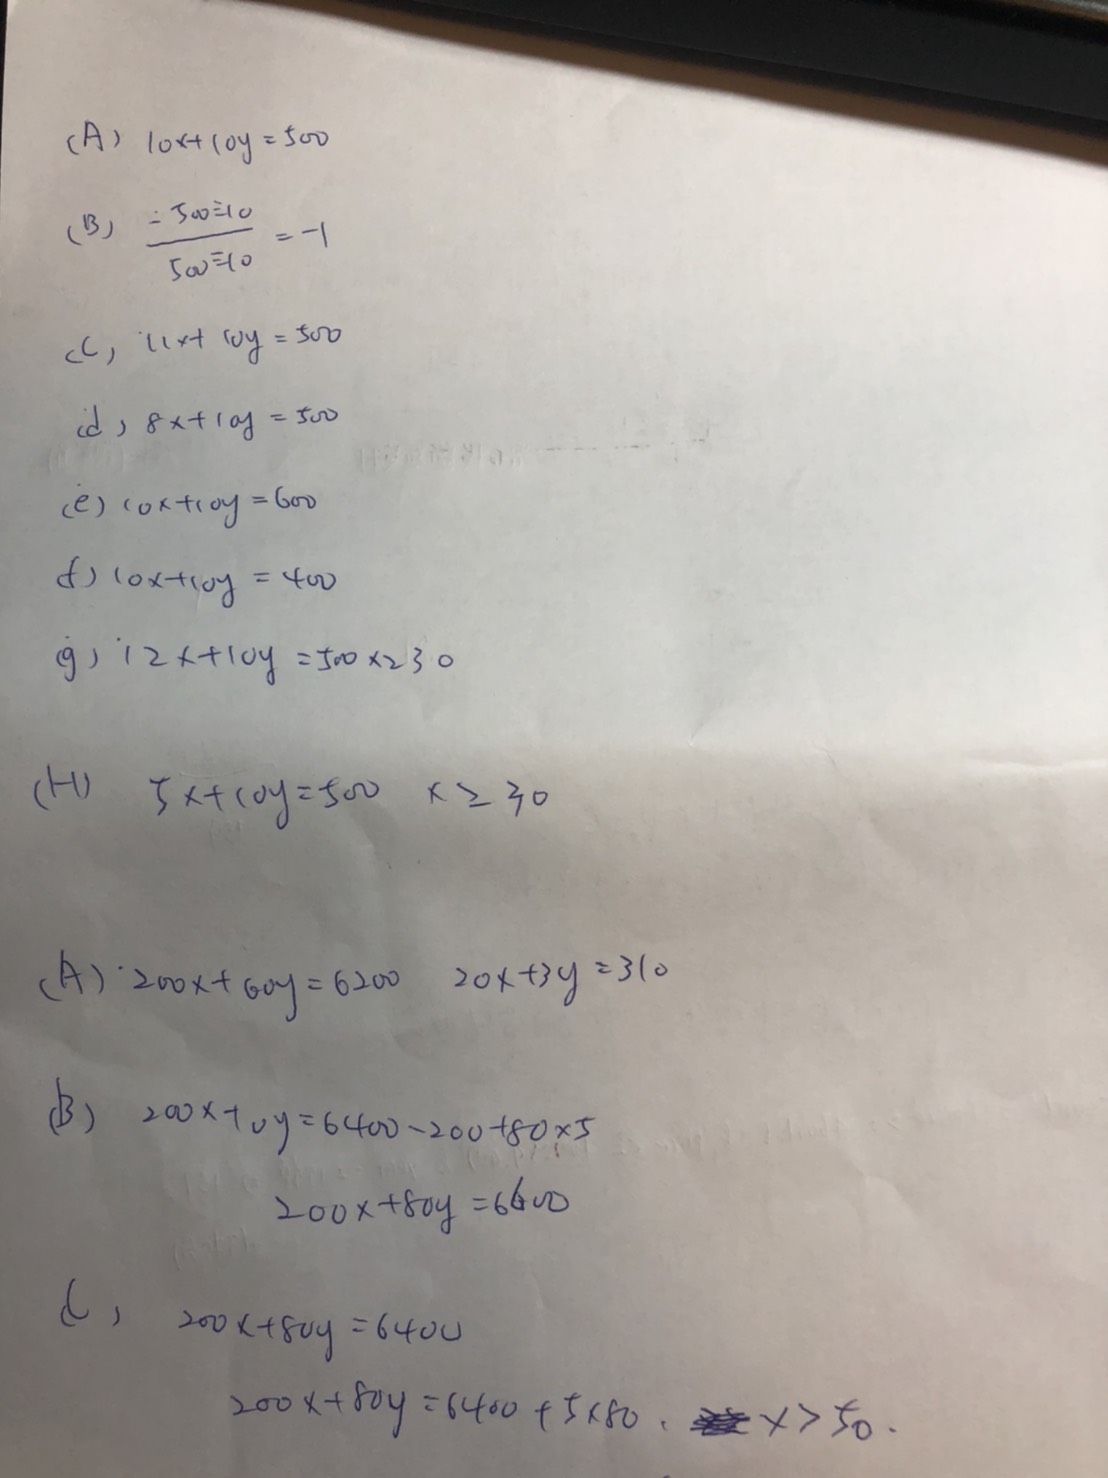 (A) 10x+10y=500
(B) -500÷10
500÷10 = -1
(C) 11x+10y=500
(d) 8x+10y=500
(e) 10x+10y=600
f) 10x+10y=400
g) 12x+10y=500 x≥30
(H) 5x+10y=500 x≥30
(A) 200x+60y=6200 20x+3y=310
(B) 200x+0y=6400-200+80×5
200x+80y=6600
C) 200x+80y=6400
200x+80y=6400+5×80. x>50.